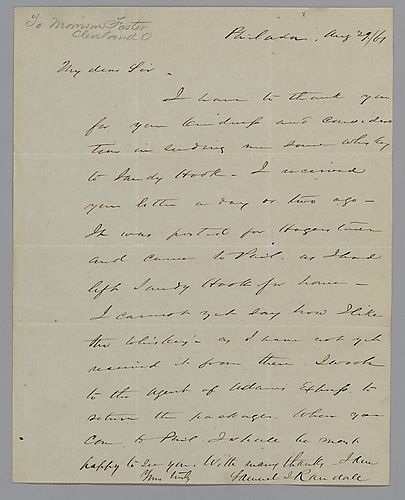 To Morrison Foster
Cleveland O
Philada. Aug 29/61
My dear Sir.
I have to thank you
for your kindness and considera
tion in sending me some whiskey
to Sandy Hook - I received
your letter a day or two ago -
It was posted for Hagerstown
and came to Phil. as I had
left Sandy Hook for home -
I cannot yet say how I like
the whiskey as I have not yet
received it from there. I wrote
to the agent of Adams Express to
return the packages. When you
come to Phil. I shall be most
happy to see you. With many thanks I am
Yours truly
Samuel J Randall